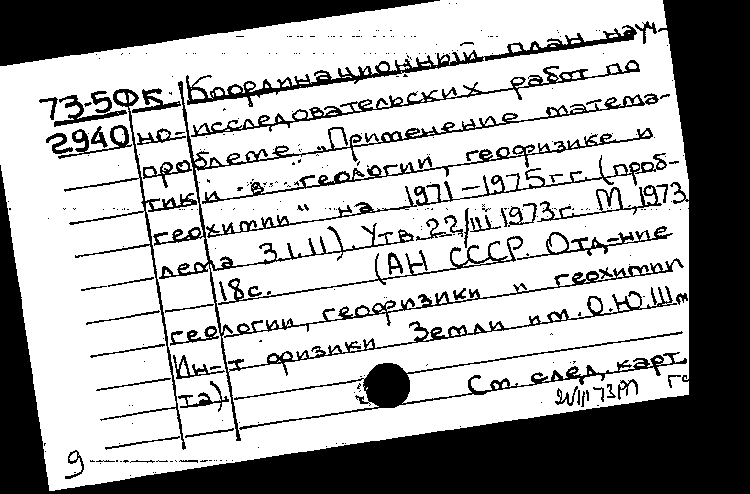 73-5ФК Координационный план науч-
2940 но-исследовательских работ по
проблеме: "Применение матема-
тики в геологии, геофизике и
геохимии" на 1971-1975г.г. (проб-
лема 3.1.11). Утв. 22/III 1973г. М., 1973.
18с. (АН СССР. Отд-ние
геологии, геофизики и геохимии
Ин-т физики Земли им. О.Ю.Шм
та).
См. след. карт.
9